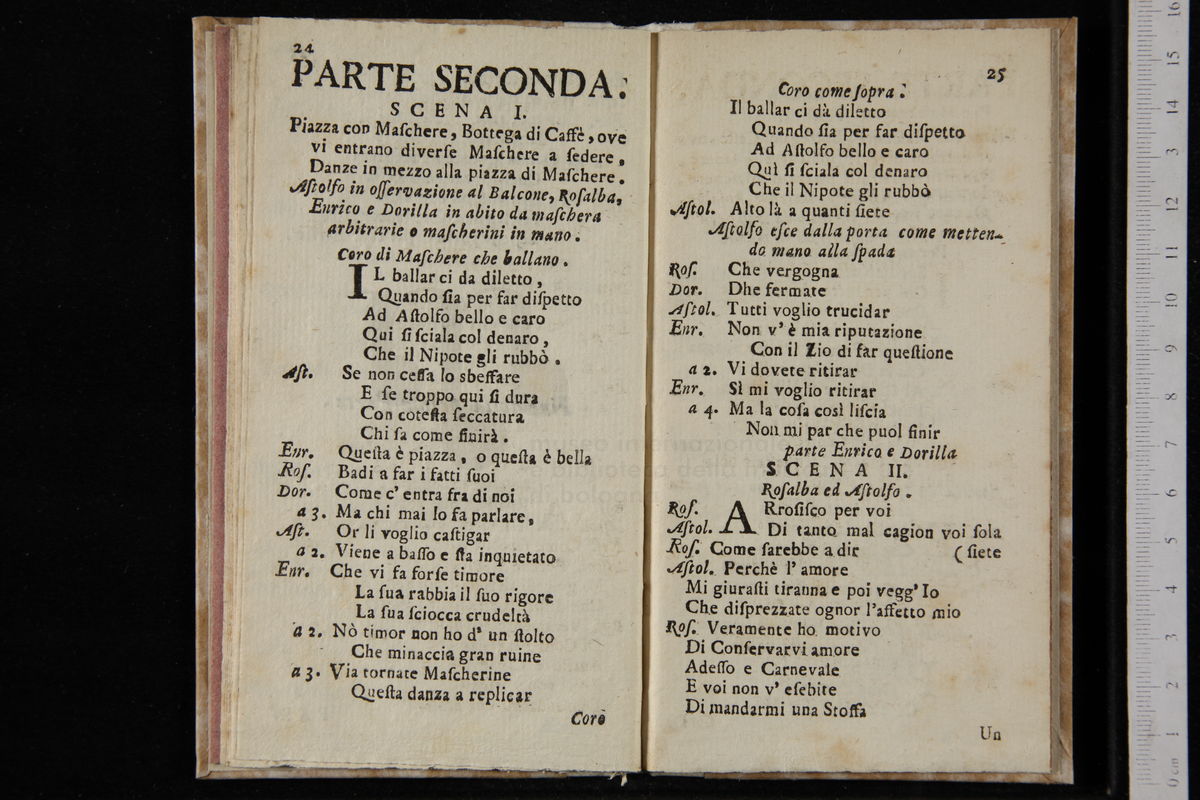 24
PARTE SECONDA.
SCENA I.
Piazza con Maſchere, Bottega di Caffè, ove
vi entrano diverſe Maſchere a ſedere,
Danze in mezzo alla piazza di Maſchere.
Aſtolfo in oſſervazione al Balcone, Roſalba,
Enrico e Dorilla in abito da maſchera
arbitrarie o maſcherini in mano.
Coro di Maſchere che ballano.
IL ballar ci da diletto,
Quando ſia per far diſpetto
Ad Aſtolfo bello e caro
Qui ſi ſciala col denaro,
Che il Nipote gli rubbò.
Aſt. Se non ceſſa lo sbeffare
E ſe troppo qui ſi dura
Con coteſta ſeccatura
Chi ſa come finirà.
Enr. Queſta è piazza, o queſta è bella
Roſ. Badi a far i fatti ſuoi
Dor. Come c' entra fra di noi
a 3. Ma chi mai lo fa parlare,
Aſt. Or li voglio caſtigar
a 2. Viene a baſſo e ſta inquietato
Enr. Che vi fa forſe timore
La ſua rabbia il ſuo rigore
La ſua ſciocca crudeltà
a 2. Nò timor non ho d' un ſtolto
Che minaccia gran ruine
a 3. Via tornate Maſcherine
Queſta danza a replicar
Coro
25
Coro come ſopra.
Il ballar ci dà diletto
Quando ſia per far diſpetto
Ad Aſtolfo bello e caro
Quì ſi ſciala col denaro
Che il Nipote gli rubbò
Aſtol. Alto là a quanti ſiete
Aſtolfo eſce dalla porta come metten-
do mano alla ſpada
Roſ. Che vergogna
Dor. Dhe fermate
Aſtol. Tutti voglio trucidar
Enr. Non v' è mia riputazione
Con il Zio di far queſtione
a 2. Vi dovete ritirar
Enr. Sì mi voglio ritirar
a 4. Ma la coſa così liſcia
Non mi par che puol finir
parte Enrico e Dorilla
SCENA II.
Roſalba ed Aſtolfo.
Roſ. ARroſiſco per voi
Aſtol. Di tanto mal cagion voi ſola
Roſ. Come ſarebbe a dir (ſiete
Aſtol. Perchè l' amore
Mi giuraſti tiranna e poi vegg' Io
Che diſprezzate ognor l'affetto mio
Roſ. Veramente ho motivo
Di Conſervarvi amore
Adeſſo e Carnevale
E voi non v' eſebite
Di mandarmi una Stoffa
Un